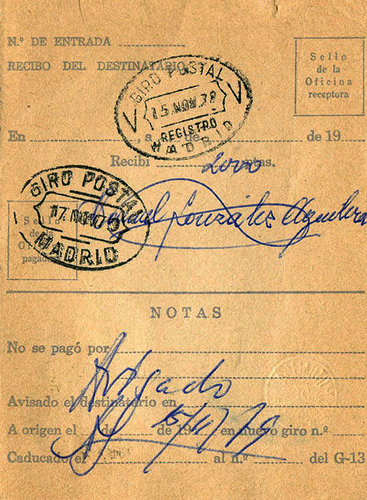 N.º DE ENTRADA
RECIBO DEL DESTINATARIO
Sello
de la
Oficina
receptora
GIRO POSTAL
15 NOV.79
REGISTRO
MADRID
En a de de 19
Recibí pesetas.
GIRO POSTAL
17 NOV
MADRID
González Aguilera
NOTAS
No se pagó por
Avisado el destinatario en
15/11/79
A origen el de de 19 en nuevo giro n.º
Caducado el al n.º del G-13